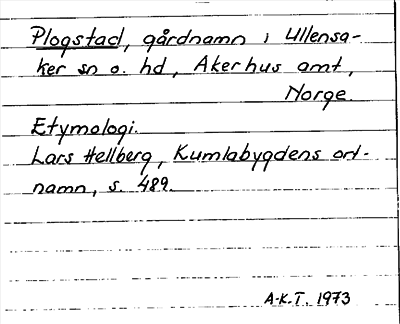 Plogstad, gårdnamn i Ullensa-
ker sn o. hd, Akerhus amt,
Norge.
Etymologi.
Lars Hellberg, Kumlabygdens ort-
namn, s. 489.
A-K.T. 1973